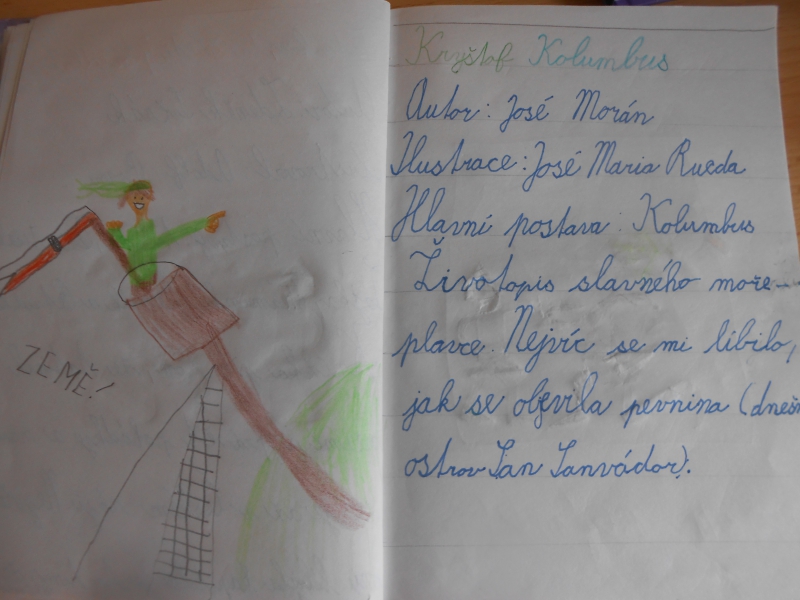 ZEMĚ!
Kryštof Kolumbus
Autor: José Morán
Ilustrace: José Maria Rueda
Hlavní postava: Kolumbus
Životopis slavného moře-
plavce. Nejvíc se mi líbilo,
jak se objevila pevnina (dnešn
ostrov San Sanvádor).